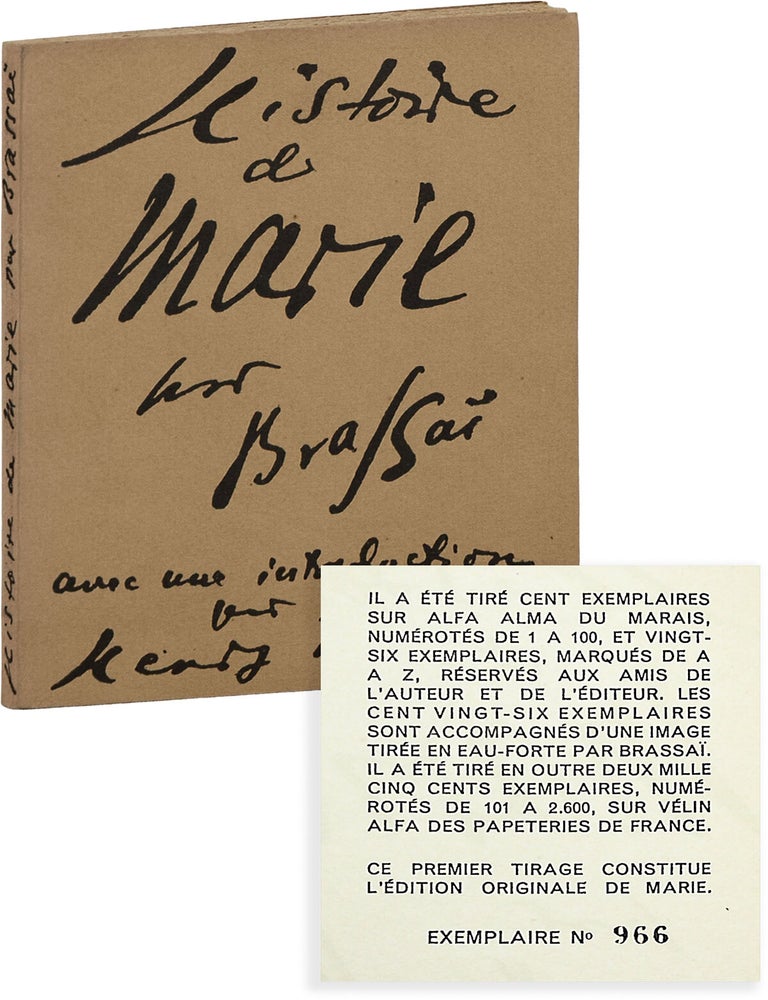 Histoire
de
Marie
par
Brassaï
avec une introduction
par
Henry
Histoire de Marie par Brassaï
IL A ÉTÉ TIRÉ CENT EXEMPLAIRES
SUR ALFA ALMA DU MARAIS,
NUMÉROTÉS DE 1 A 100, ET VINGT-
SIX EXEMPLAIRES, MARQUÉS DE A
A Z, RÉSERVÉS AUX AMIS DE
L'AUTEUR ET DE L'ÉDITEUR. LES
CENT VINGT-SIX EXEMPLAIRES
SONT ACCOMPAGNÉS D'UNE IMAGE
TIRÉE EN EAU-FORTE PAR BRASSAÏ.
IL A ÉTÉ TIRÉ EN OUTRE DEUX MILLE
CINQ CENTS EXEMPLAIRES, NUMÉ-
ROTÉS DE 101 A 2.600, SUR VÉLIN
ALFA DES PAPETERIES DE FRANCE.
CE PREMIER TIRAGE CONSTITUE
L'ÉDITION ORIGINALE DE MARIE.
EXEMPLAIRE Nº 966